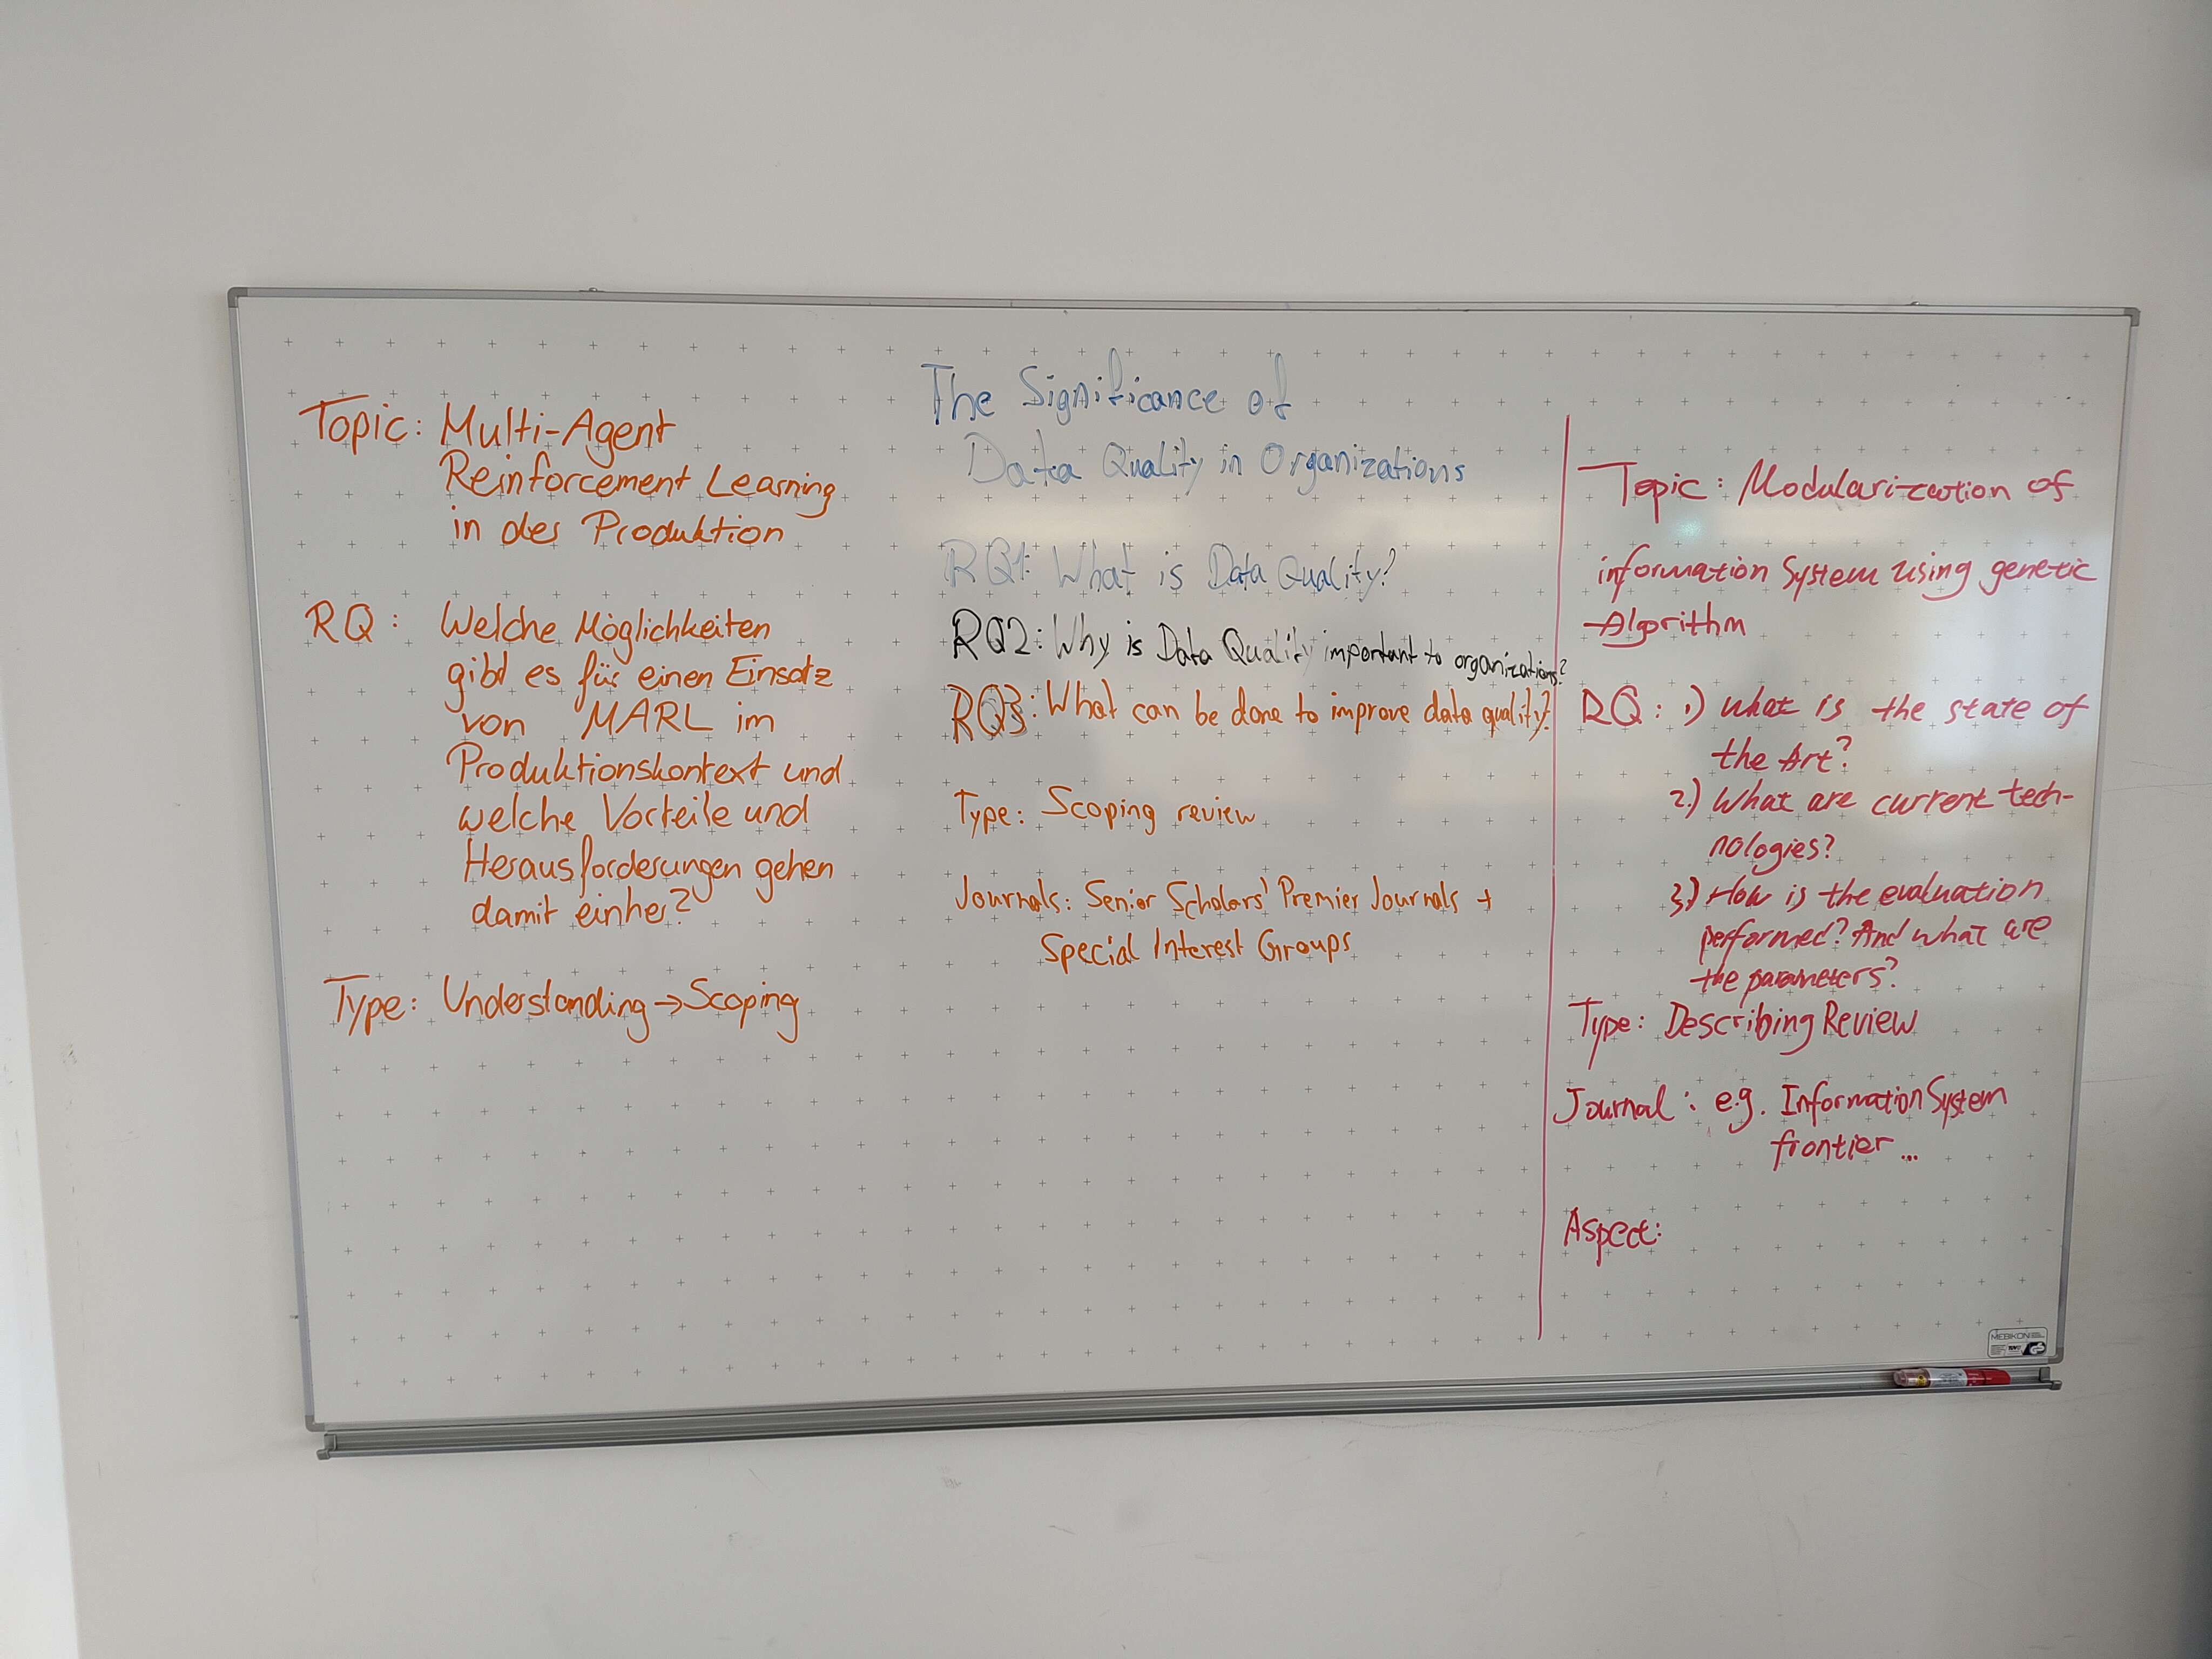 Topic: Multi-Agent
Reinforcement Learning
in der Produktion
RQ: Welche Möglichkeiten
gibt es für einen Einsatz
von MARL im
Produktionskontext und
welche Vorteile und
Herausforderungen gehen
damit einher?
Type: Understanding → Scoping
The Significance of
Data Quality in Organizations
RQ1: What is Data Quality?
RQ2: Why is Data Quality important to organizations?
RQ3: What can be done to improve data quality?
Type: Scoping review
Journals: Senior Scholars' Premier Journals +
Special Interest Groups
Topic: Modularization of
information System using genetic
Algorithm
RQ: 1) what is the state of
the Art?
2.) What are current tech-
nologies?
3.) How is the evaluation
performed? And what are
the parameters?
Type: Describing Review
Journal: e.g. Information System
frontier...
Aspect:
MEBIKON